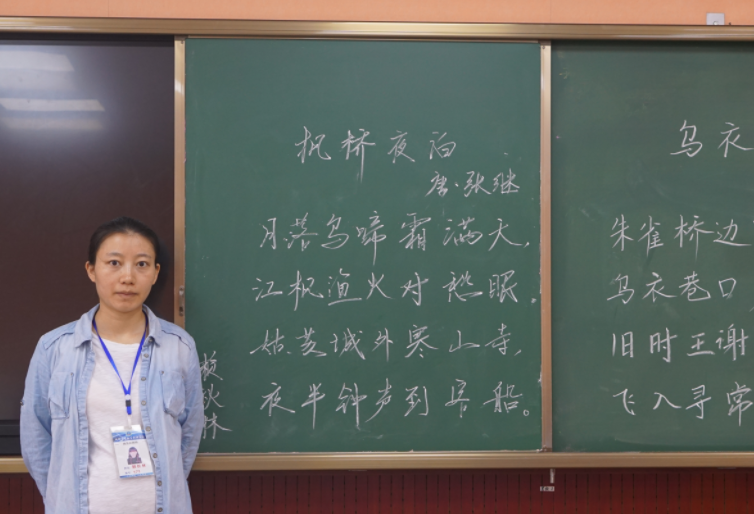 枫桥夜泊
唐·张继
月落乌啼霜满天,
江枫渔火对愁眠。
姑苏城外寒山寺,
夜半钟声到客船。
乌衣
朱雀桥边
乌衣巷口
旧时王谢
飞入寻常